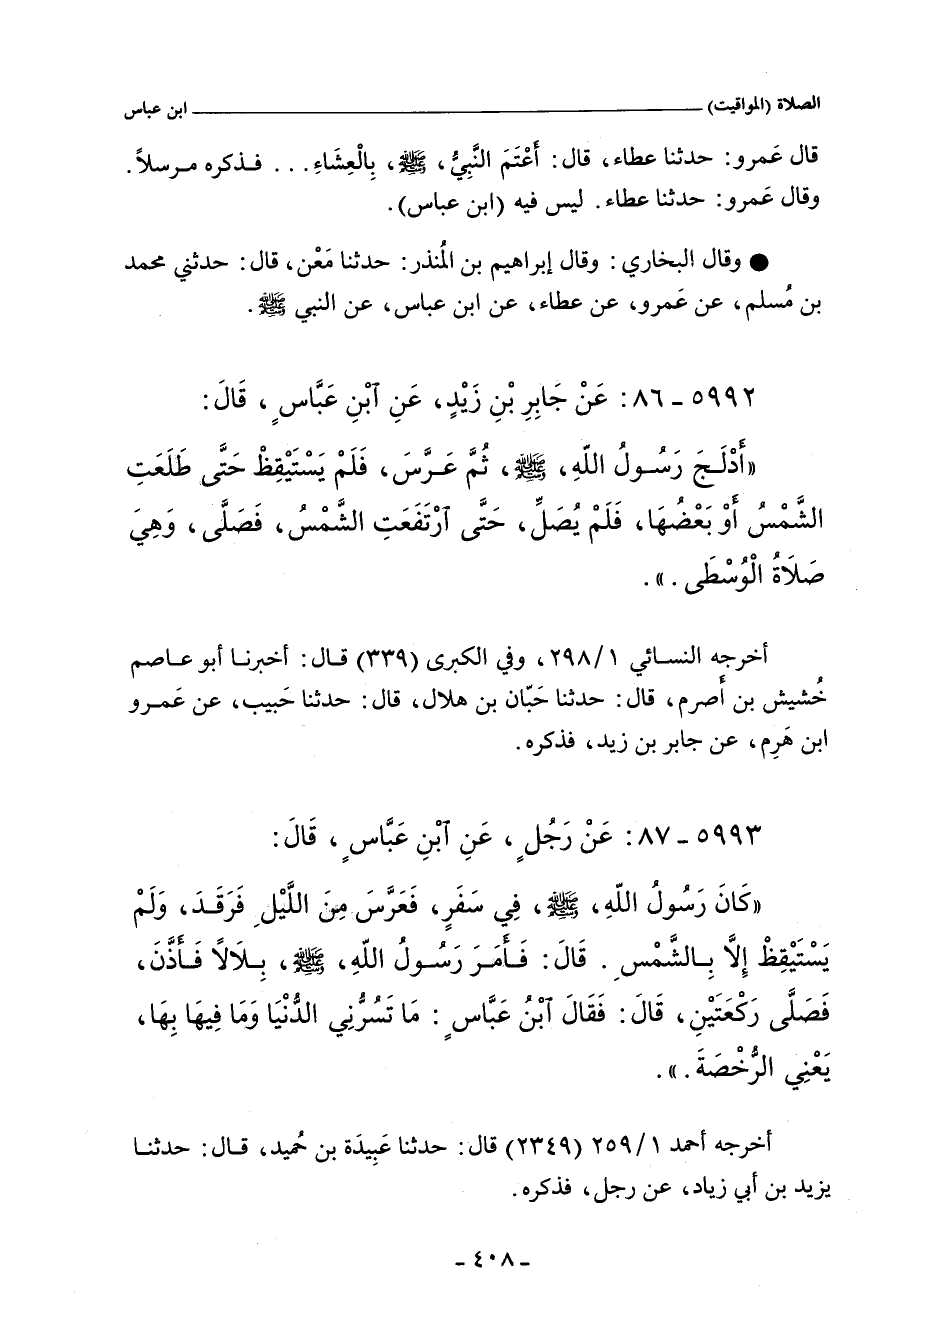 الصلاة (المواقيت) ابن عباس
قال عَمرو: حدثنا عطاء، قال: أَعْتَمَ النَّبِيُّ، ﷺ، بِالْعِشَاءِ... فـذكره مرسلاً.
وقال عَمرو: حدثنا عطاء. ليس فيه (ابن عباس).
● وقال البخاري: وقال إبراهيم بن المُنذر: حدثنا مَعْن، قال: حدثني محمد
بن مُسلم، عن عَمرو، عن عطاء، عن ابن عباس، عن النبي ﷺ.
٥٩٩٢ ـ ٨٦: عَنْ جَابِرِ بْنِ زَيْدٍ، عَنِ ٱبْنِ عَبَّاسٍ، قَالَ:
«أَدْلَـجَ رَسُـولُ اللهِ، ﷺ، ثُمَّ عَـرَّسَ، فَلَمْ يَسْتَيْقِظْ حَتَّى طَلَعَتِ
الشَّمْسُ أَوْ بَعْضُهَا، فَلَمْ يُصَلِّ، حَتَّى ٱرْتَفَعَتِ الشَّمْسُ، فَصَلَّى، وَهِيَ
صَلَاةُ الْوُسْطَى.».
أخرجه النسـائي ١/٢٩٨، وفي الكبرى (٣٣٩) قـال: أخبرنـا أبو عـاصم
خُشيش بن أَصرم، قال: حدثنا حَبّان بن هلال، قال: حدثنا حَبيب، عن عَمـرو
ابن هَرِم، عن جابر بن زيد، فذكره.
٥٩٩٣ ـ ٨٧: عَنْ رَجُلٍ، عَنِ ٱبْنِ عَبَّاسٍ، قَالَ:
«كَانَ رَسُولُ اللهِ، ﷺ، فِي سَفَرٍ، فَعَرَّسَ مِنَ اللَّيْلِ فَرَقَـدَ، وَلَمْ
يَسْتَيْقِظْ إِلَّا بِـالشَّمْسِ. قَالَ: فَـأَمَـرَ رَسُـولُ اللهِ، ﷺ، بِـلَالًا فَـأَذَّنَ،
فَصَلَّى رَكْعَتَيْنِ، قَالَ: فَقَالَ ٱبْنُ عَبَّاسٍ: مَا تَسُرُّنِي الدُّنْيَا وَمَا فِيهَا بِهَا،
يَعْنِي الرُّخْصَةَ.».
أخرجه أحمد ١/٢٥٩ (٢٣٤٩) قال: حدثنا عَبِيدَة بن حُميد، قـال: حدثنـا
يزيد بن أبي زياد، عن رجل، فذكره.
- ٤٠٨ -